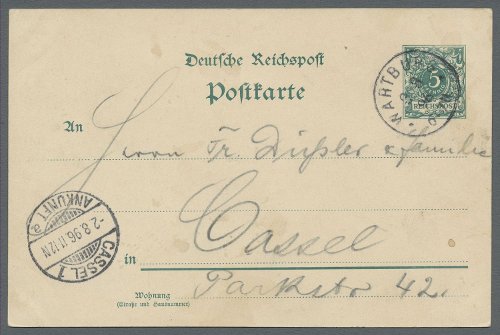 Deutsche Reichspost
Postkarte
WARTBURG
5
REICHSPOST
An
Herrn Fr. Dißler & Familie
Cassel
in
Parkstr 42.
Wohnung
(Straße und Hausnummer)
ANKUNFT a
-2.8.96.11-12N
CASSEL 1